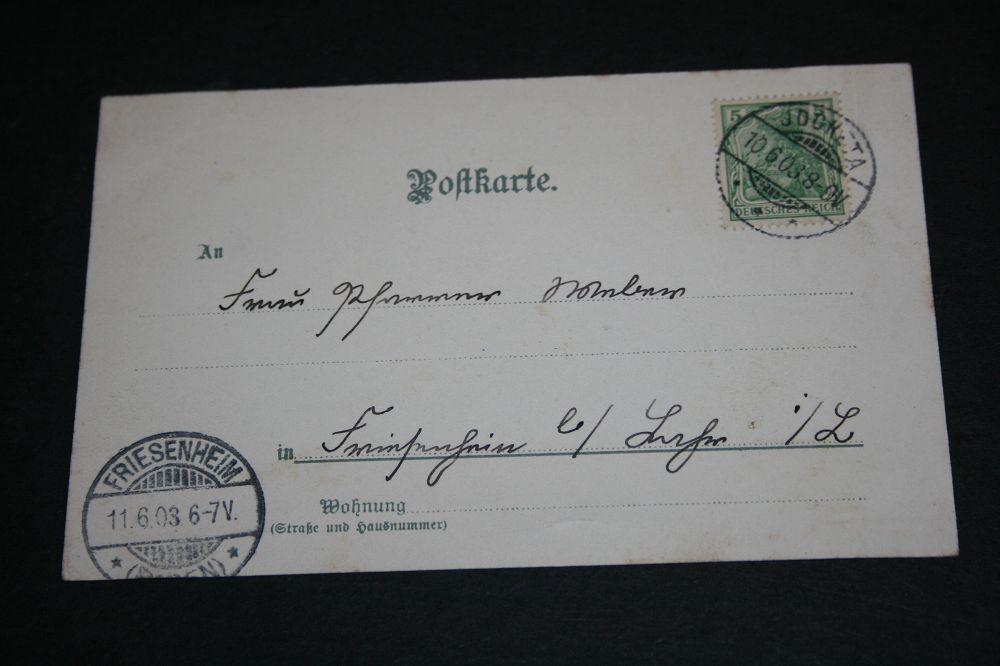 Postkarte.
5 5
DEUTSCHES REICH
JOCKETA
10.6.03.8-9V.
An
Frau Pfarrer Weber
in Friesenheim b/ Lahr i/
Wohnung
(Straße und Hausnummer)
FRIESENHEIM
11.6.03 6-7V.
(BADEN)